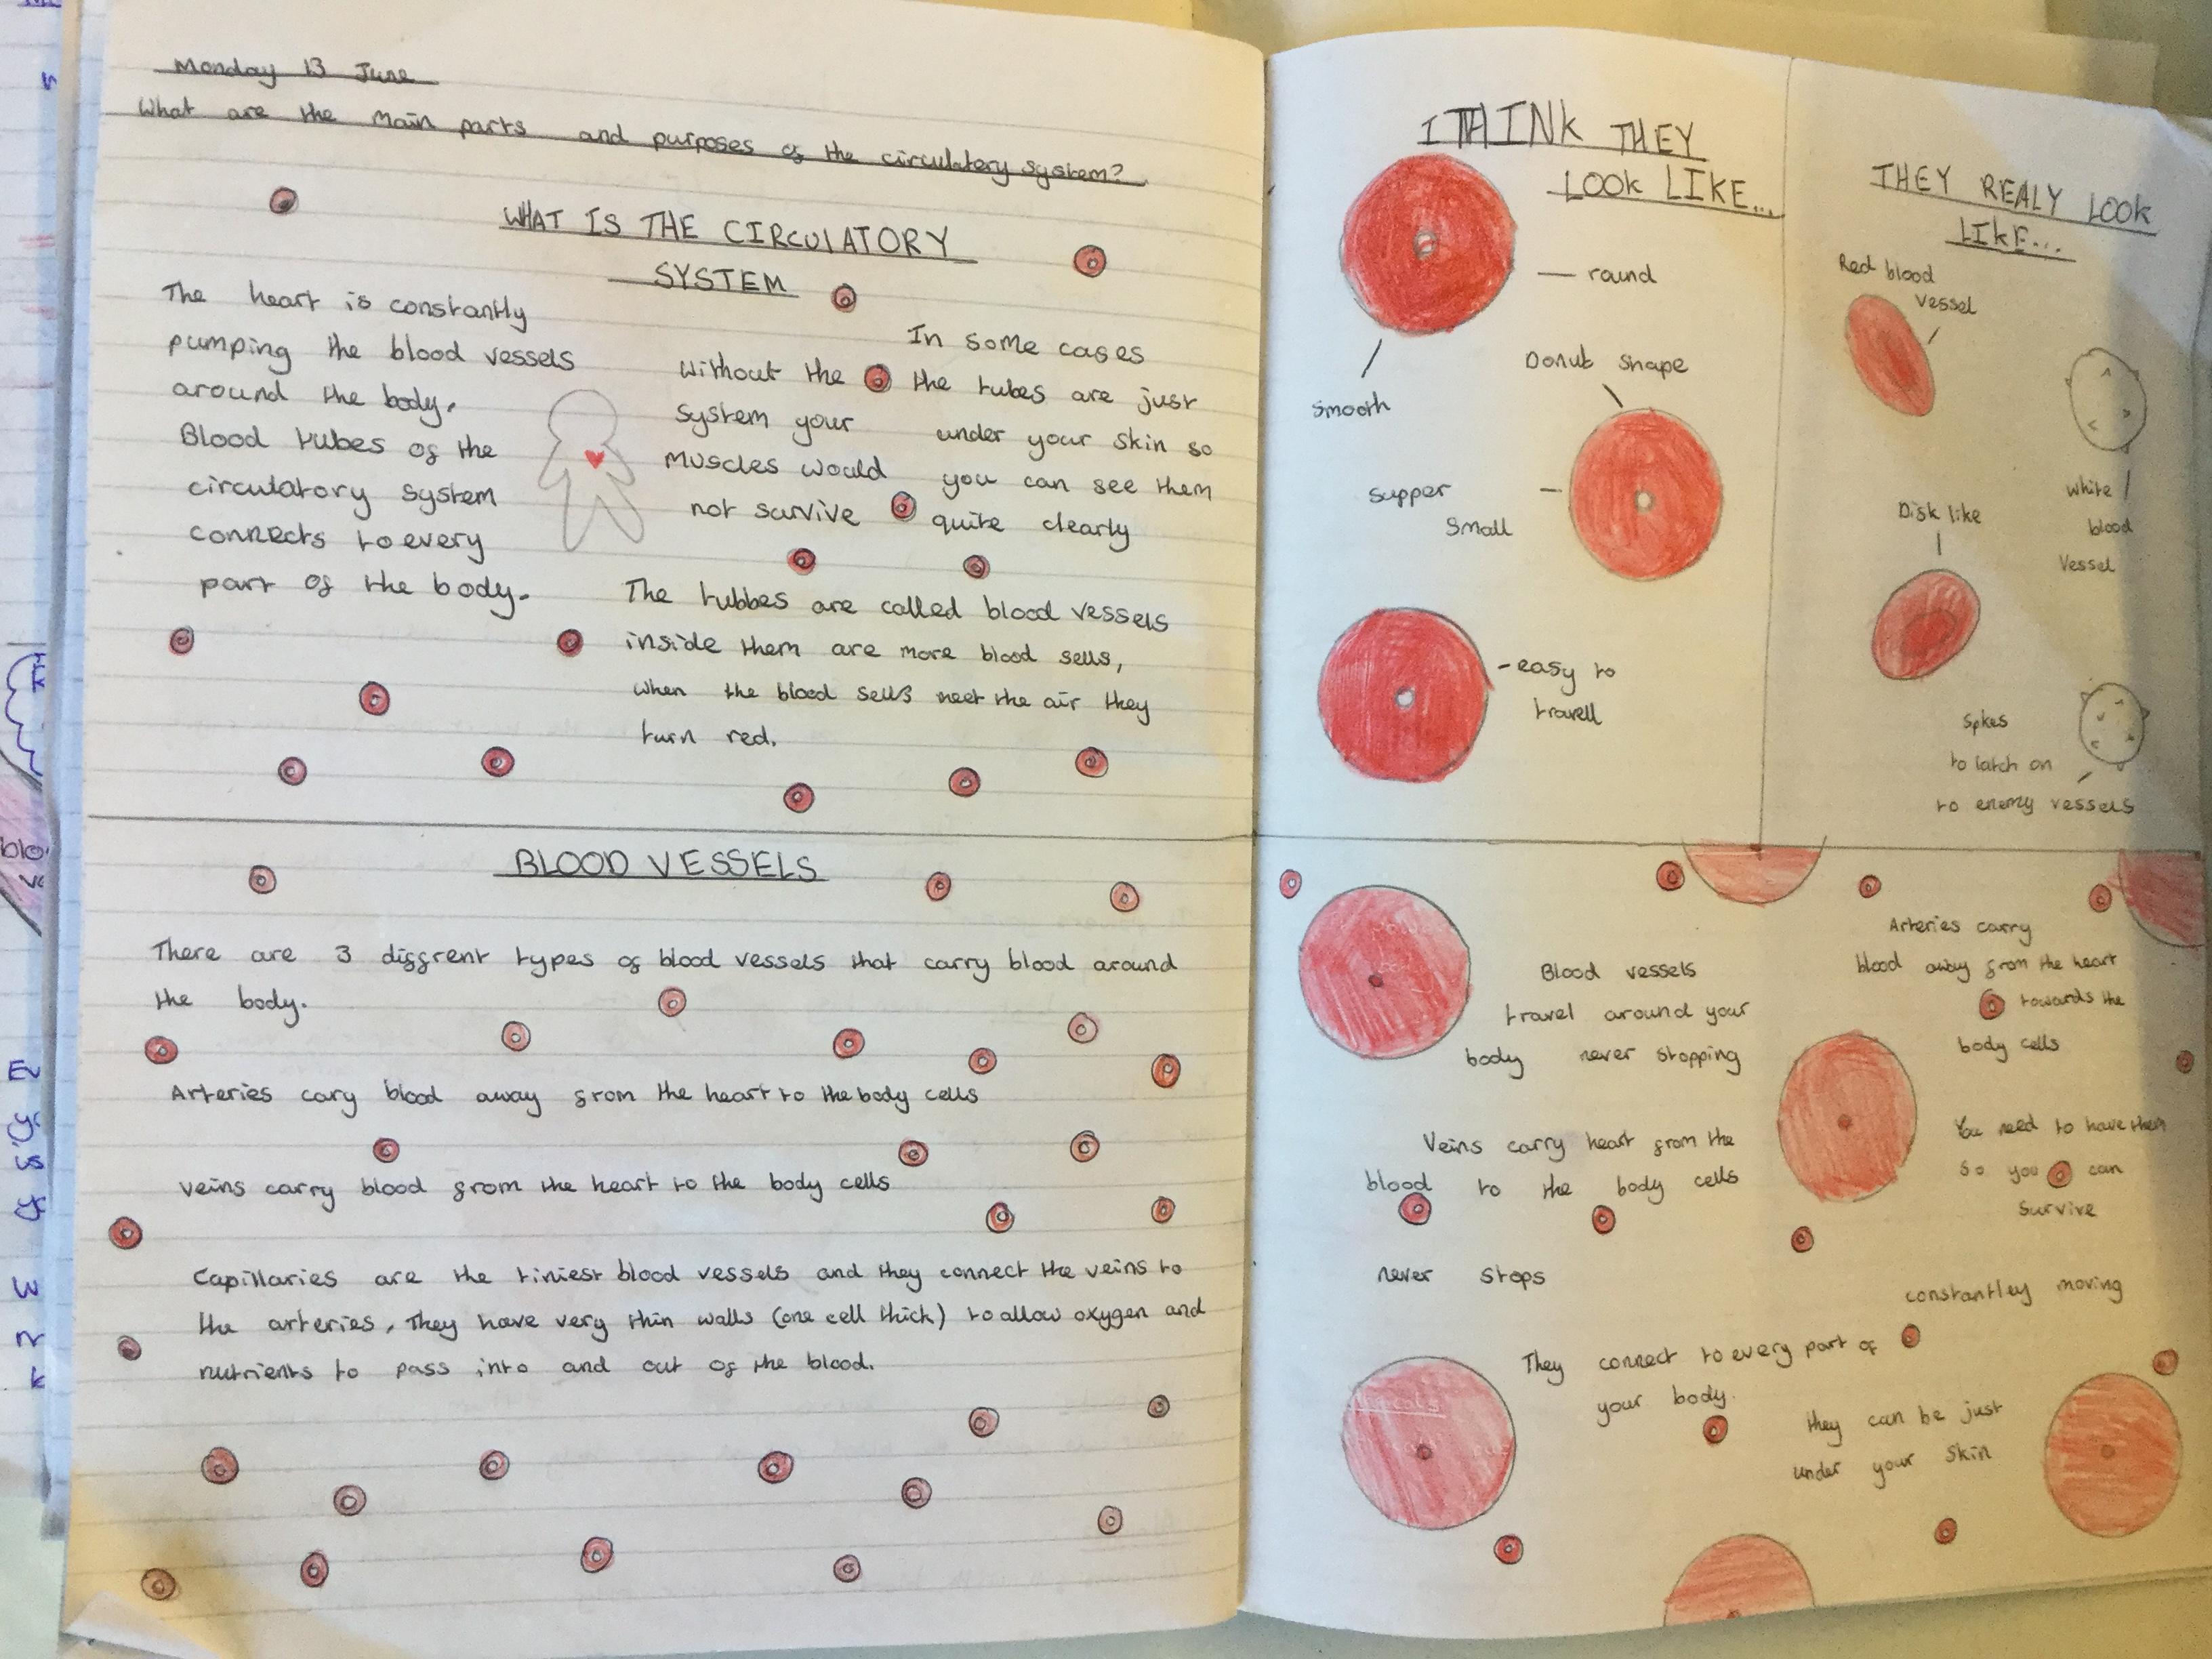 Monday 13 June
What are the main parts and purposes of the circulatory system?
WHAT IS THE CIRCULATORY
SYSTEM
The heart is constantly
pumping the blood vessels
around the body.
Blood tubes of the
circulatory system
connects to every
part of the body.
Without the
system your
muscles would
not survive
In some cases
the tubes are just
under your skin so
you can see them
quite clearly
The tubbes are called blood vessels
inside them are more blood sells,
when the blood sells meet the air they
turn red.
BLOOD VESSELS
There are 3 diffrent types of blood vessels that carry blood around
the body.
Arteries cary blood away from the heart to the body cells
Veins carry blood from the heart to the body cells
Capillaries are the tiniest blood vessels and they connect the veins to
the arteries. They have very thin walls (one cell thick) to allow oxygen and
nutrients to pass into and out of the blood.
I THINK THEY
LOOK LIKE...
round
Smooth
Donut shape
Supper
Small
easy to
travell
THEY REALY LOOK
LIKE...
Red blood
vessel
white
blood
vessel
Disk like
Spkes
to latch on
to enemy vessels
Blood vessels
travel around your
body never stopping
Arteries carry
blood away from the heart
towards the
body cells
Veins carry heart from the
blood to the body cells
You need to have them
so you can
survive
never stops
constantley moving
They connect to every part of
your body.
they can be just
under your skin